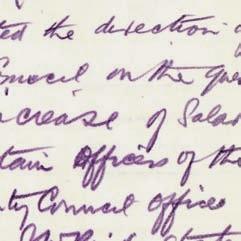 ted the direction o
Council on the ques
ncrease of Salar
tain Officers of the
nty Council Office